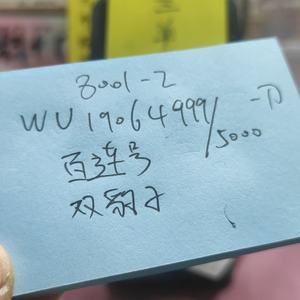 8001-2
WU19064999/5000
百连号
双豹子